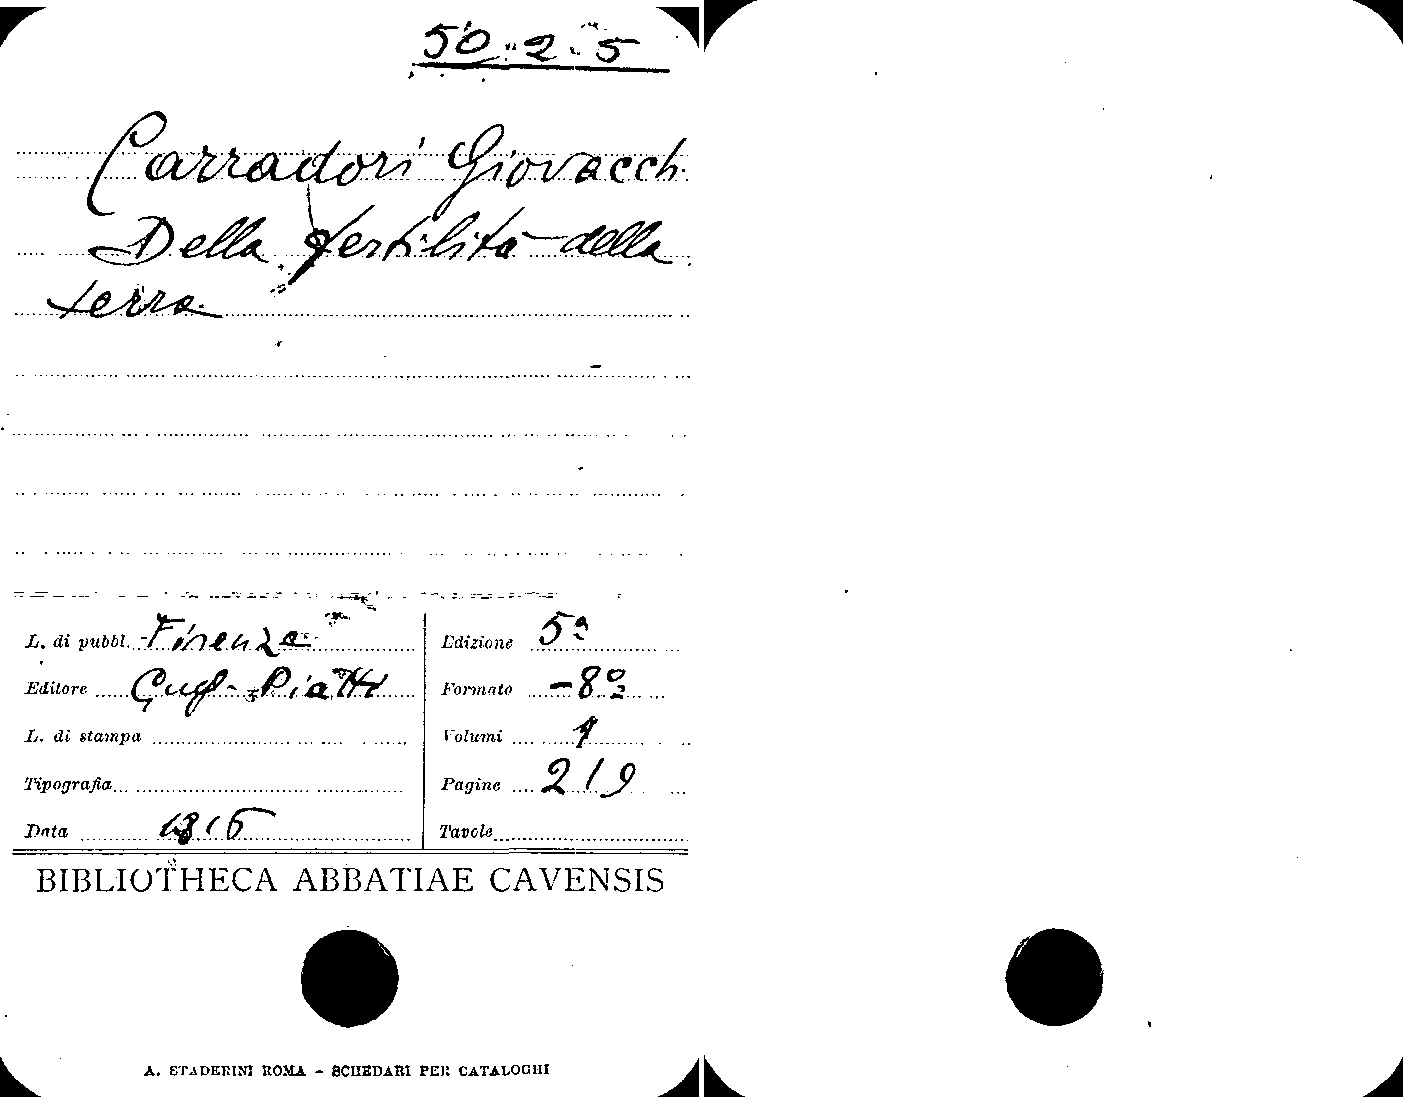 50-2-5
Carradori Giovacch.
Della fertilità della
terra
L. di pubbl. Firenze
Editore Gugl. Piatti
L. di stampa
Tipografia
Data 1816
Edizione 5ª
Formato -8º
Volumi 1
Pagine 219
Tavole
BIBLIOTHECA ABBATIAE CAVENSIS
A. STADERINI ROMA - SCHEDARI PER CATALOGHI